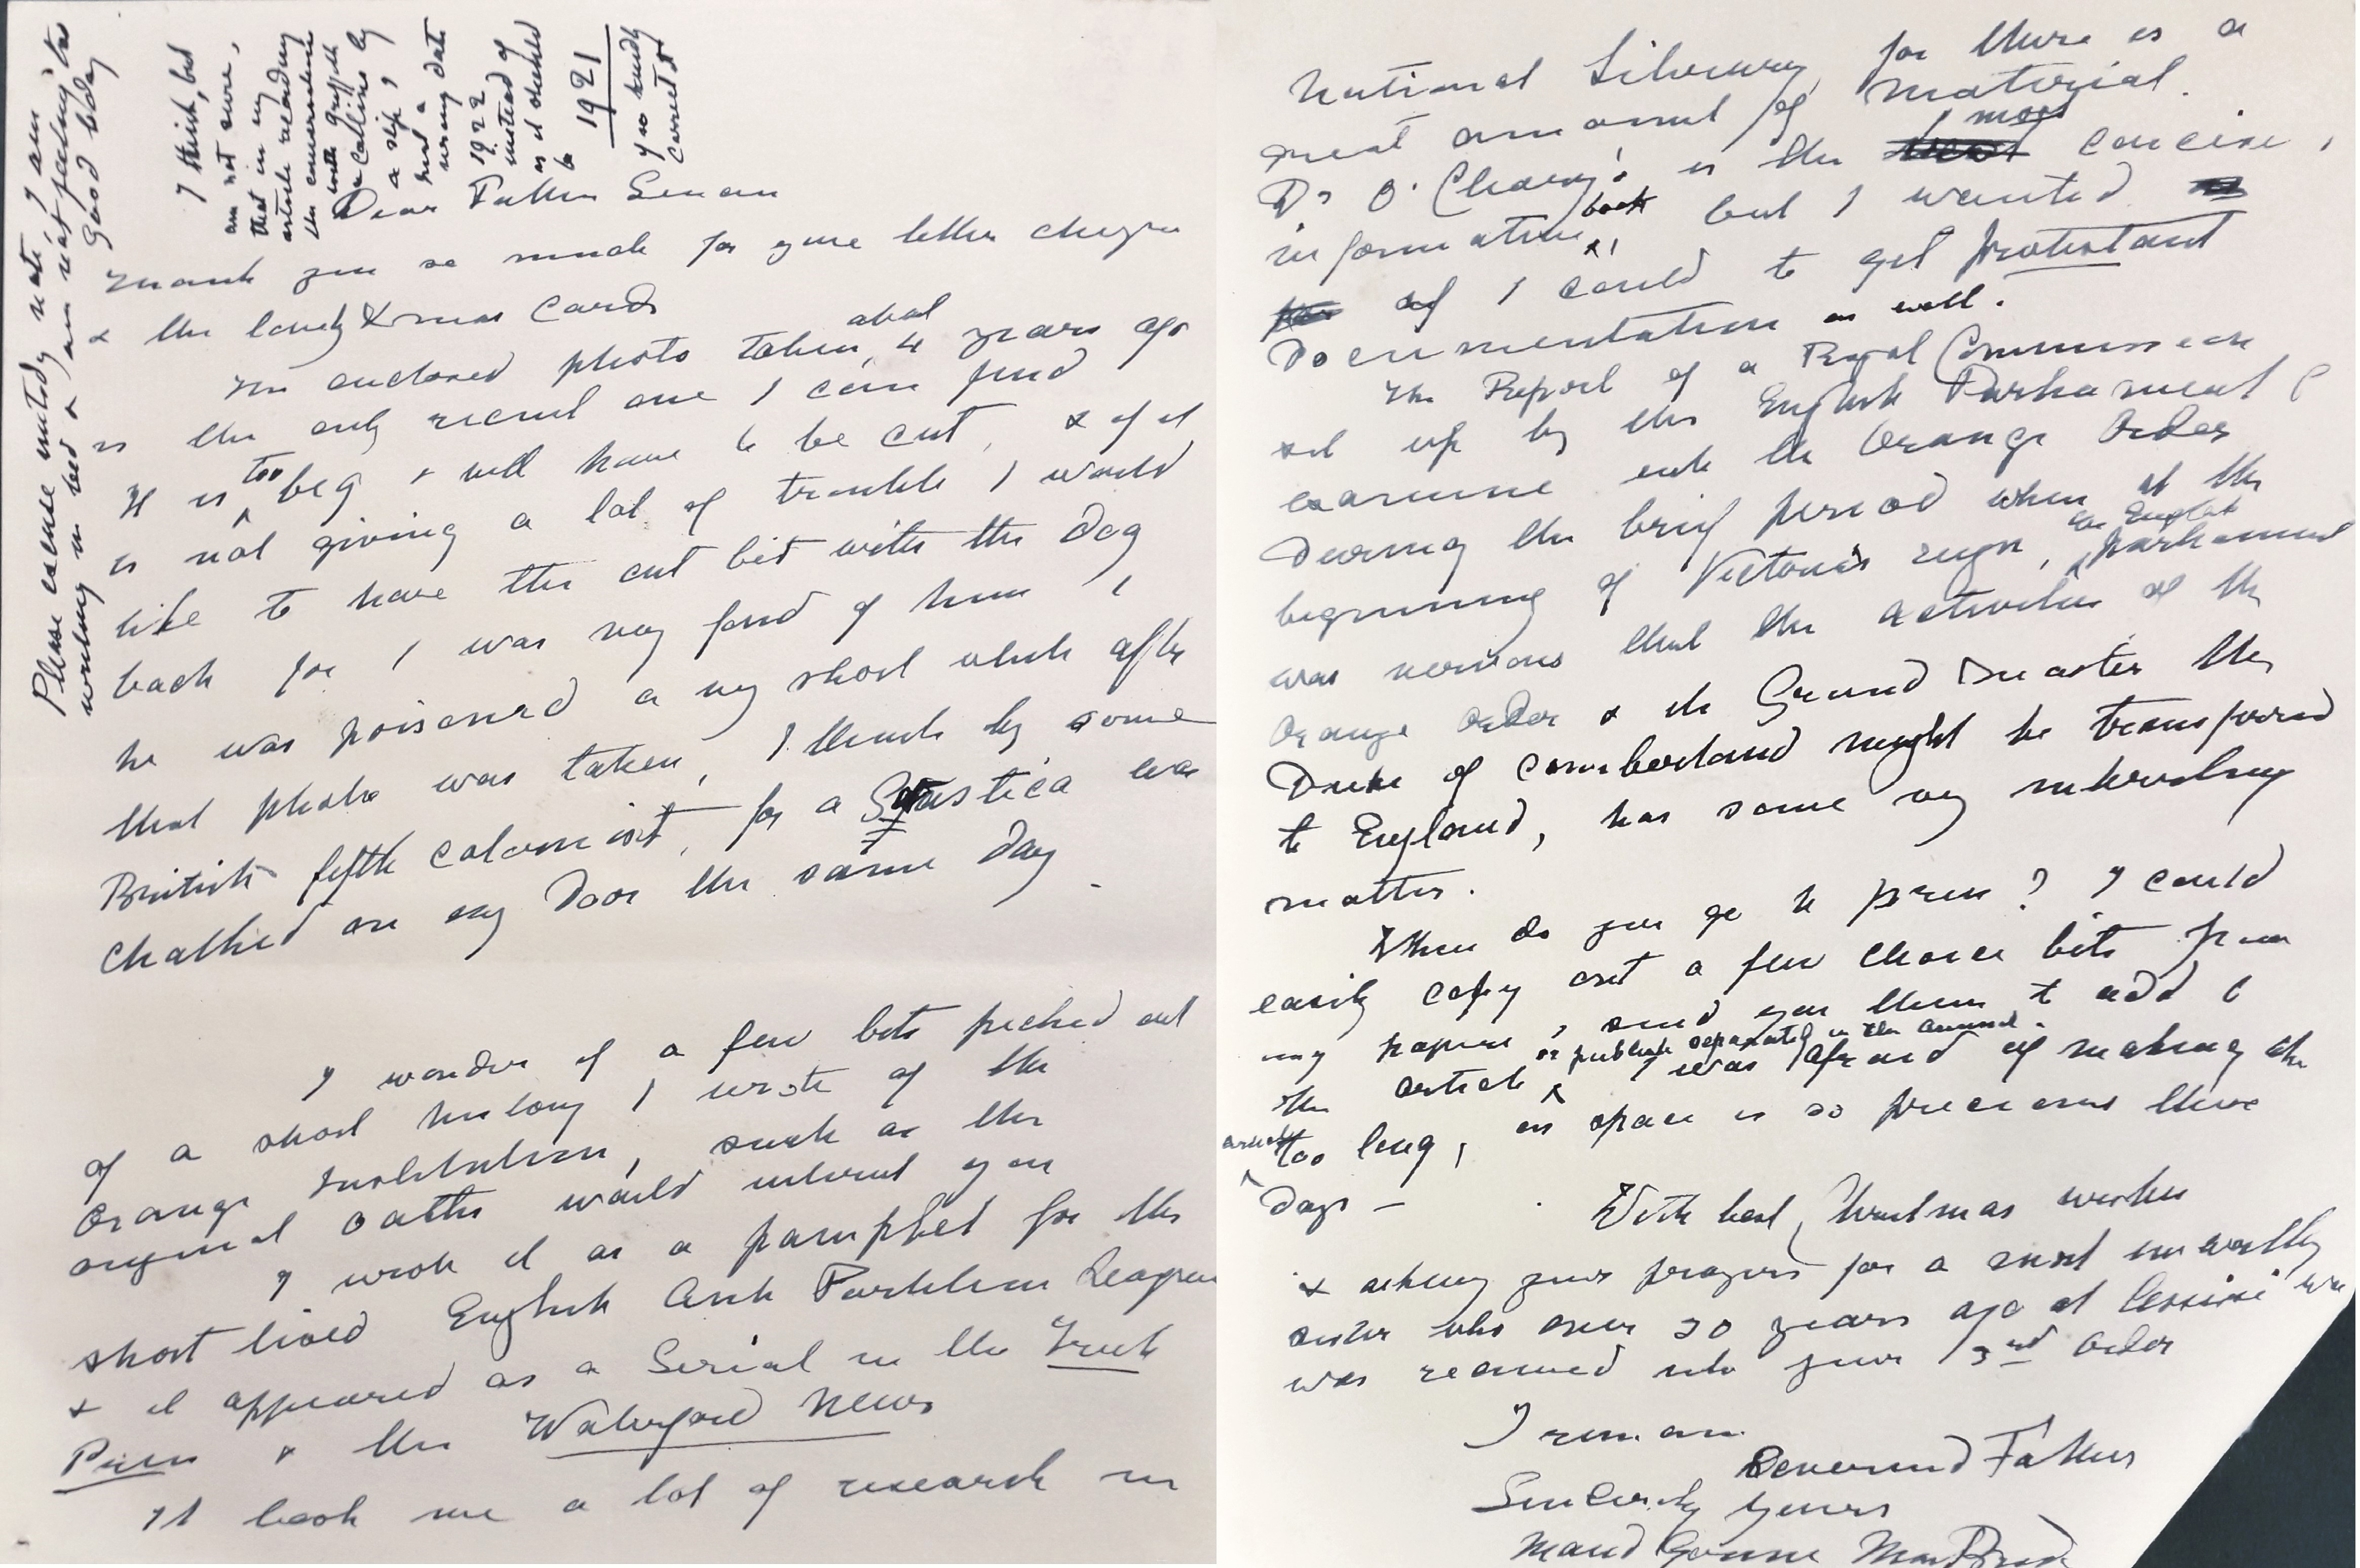 Please excuse untidy note, I am
writing in bed & am not feeling too
good today
I think, but
am not sure,
that in my
article reading
the conversation
with Griffith
& Collins by
a slip I
put a
wrong date
1922
instead of
as it should
be
1921
if so kindly
correct it
Dear Father Senan
Thank you so much for your letter cheque
& the lovely Xmas Cards
The enclosed photo taken about 4 years ago
is the only recent one I can find
It is too big & will have to be cut, & if it
is not giving a lot of trouble I would
like to have the cut bit with the dog
back for I was very fond of him &
he was poisoned a very short while after
that photo was taken, I think by some
British fifth columnist, for a Swastica was
chalked on my door the same day.
I wonder if a few bits picked out
of a short history I wrote of the
Orange Institution, such as the
original oaths would interest you
I wrote it as a pamphlet for the
short lived English Anti Partition League
& it appeared as a Serial in the Frenh
Pres & the Waterford News
It took me a lot of research in
National Library, for there is a
great amount of material.
Dr O'Cleary's is the most concise,
information book, but I wanted
if I could to get protestant
Documentation as well.
The Report of a Royal Commission
set up by the English Parliament to
examine into the Orange Order
During the brief period when at the
beginning of Victoria's reign, the English parliament
was nervous that the activities of the
Orange Order & its Grand Master the
Duke of Cumberland might be transferred
to England, has some very interesting
matter.
When do you go to press? I could
easily copy out a few choice bits from
my papers & send you them to add to
the article or publish separately in the annual. I was afraid of making the
article too long, as space is so precious these
days –
With best Christmas wishes
& asking your prayers for a most unworthy
sister who over 30 years ago at Assisi
was received into your 3rd Order
I remain
Reverend Father
Sincerely yours
Maud Gonne MacBride